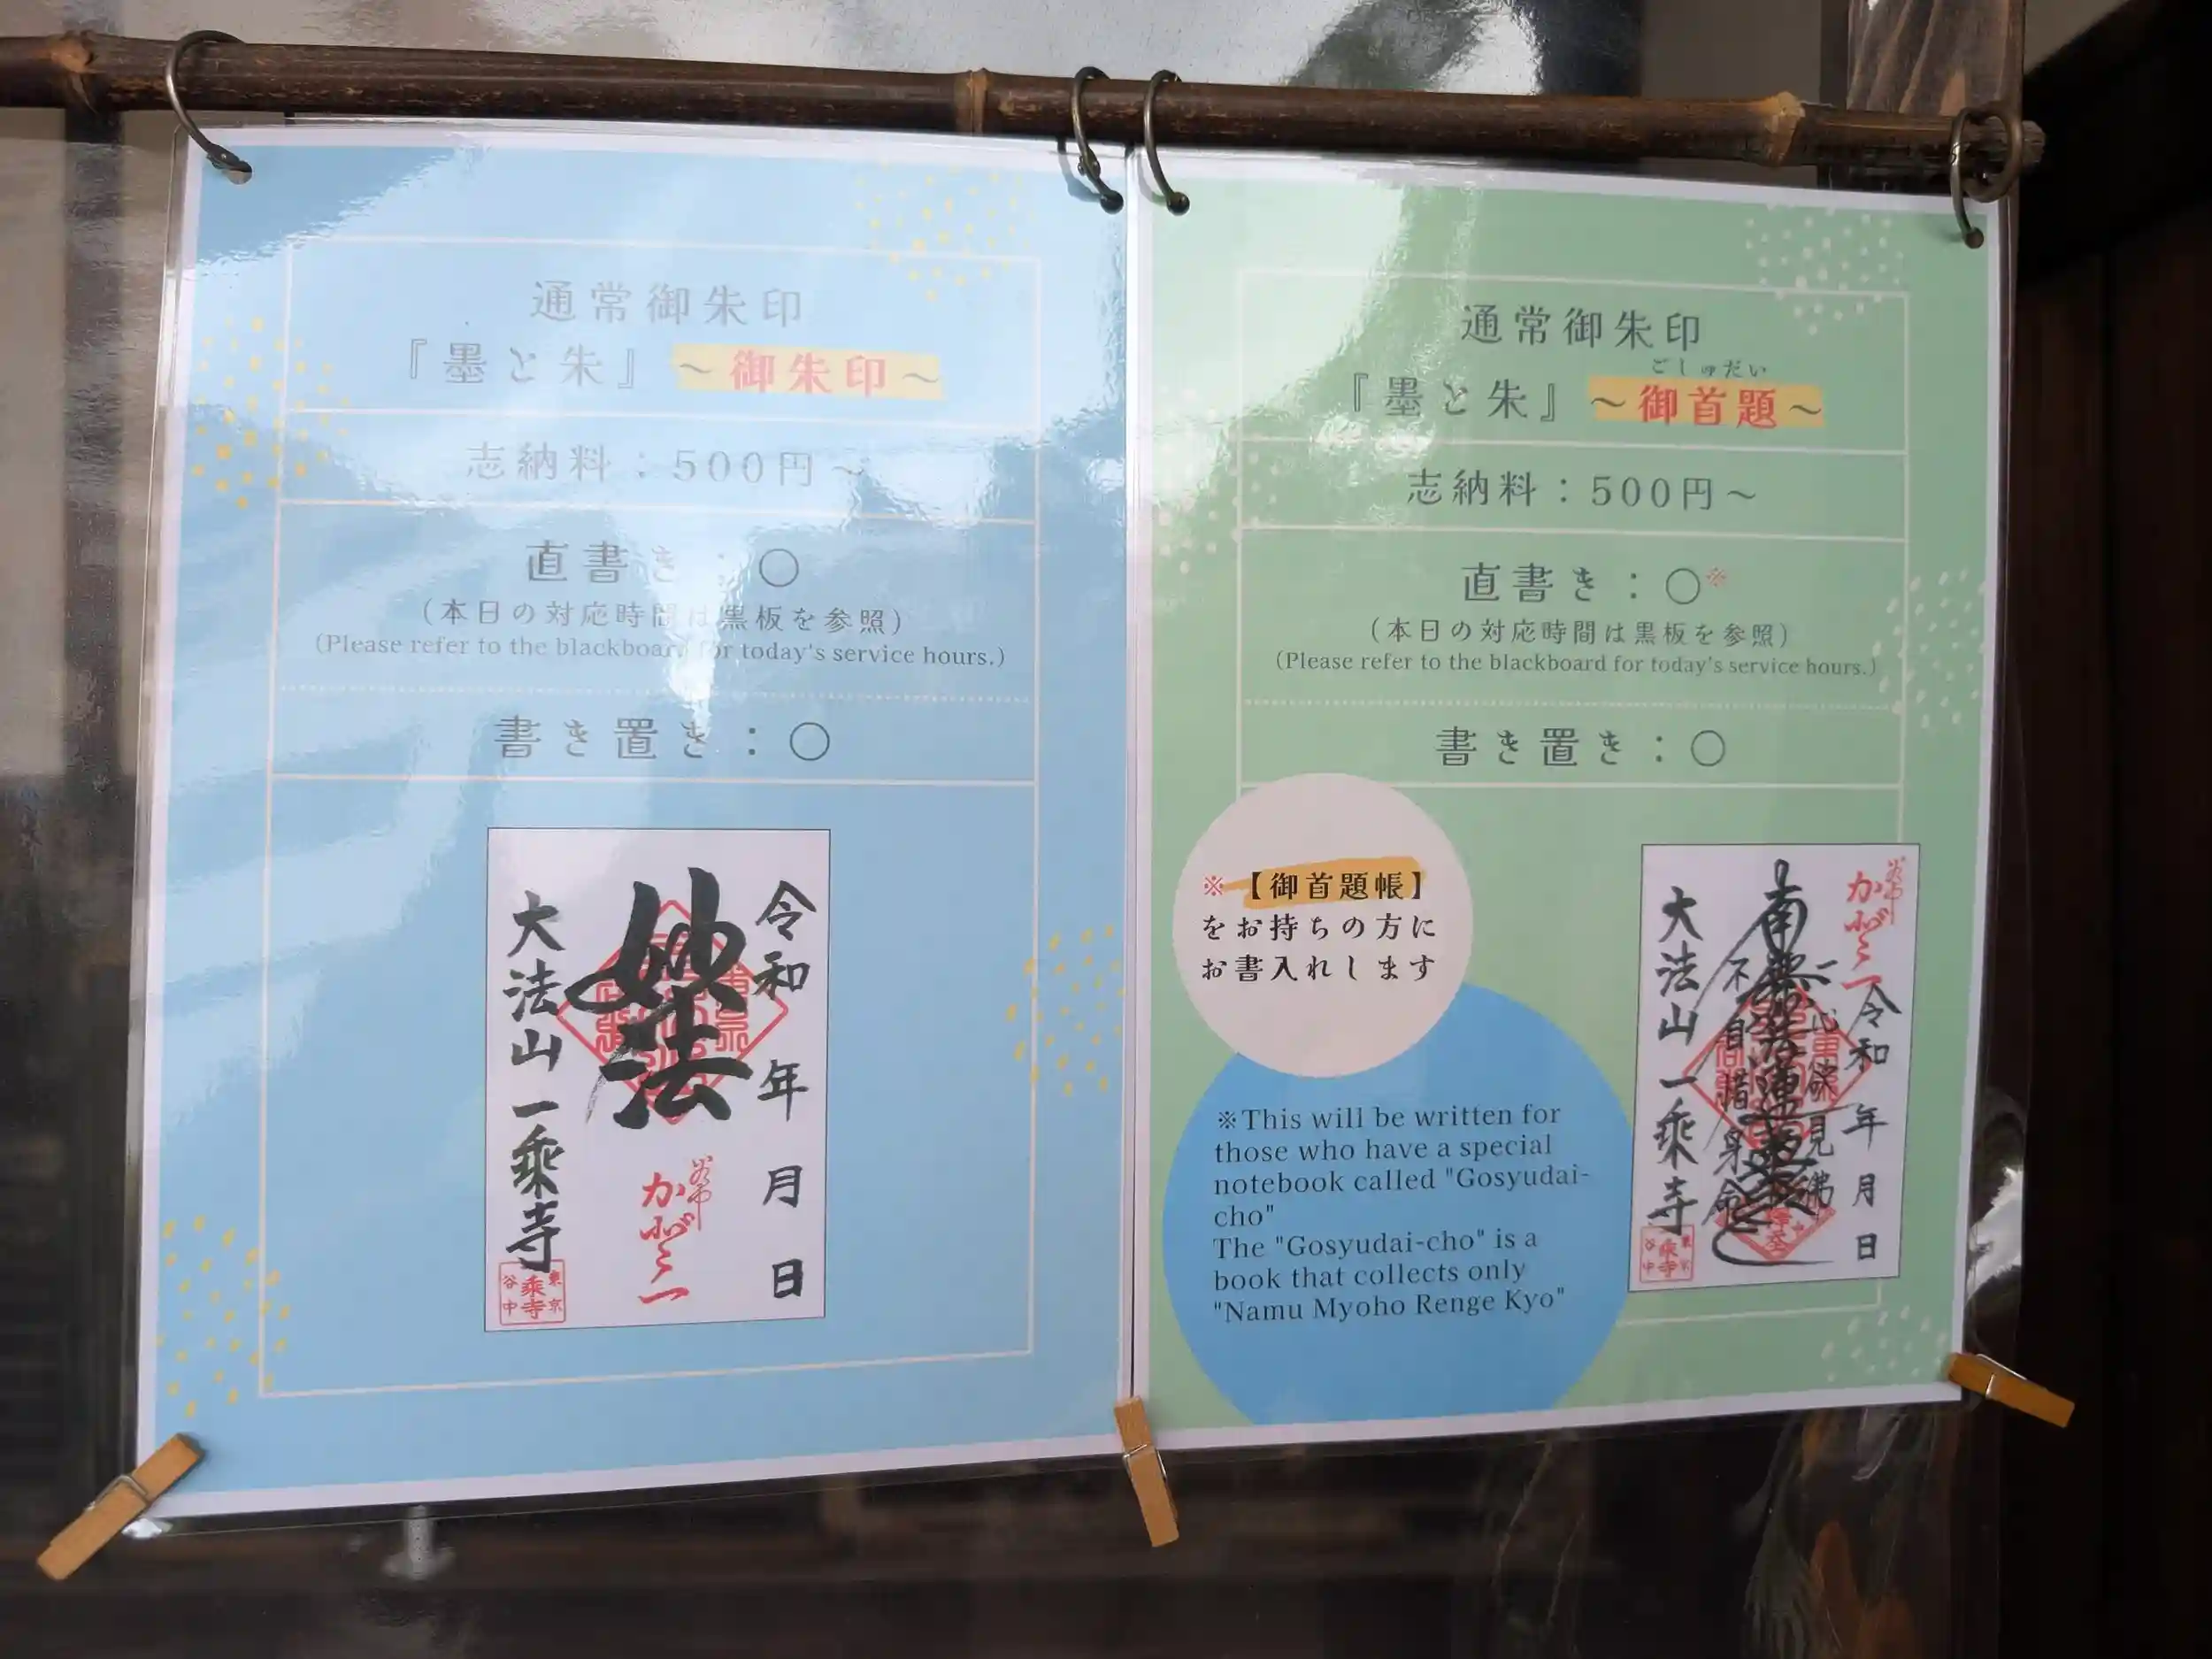 通常御朱印
『墨と朱』～御朱印～
志納料：500円～
直書き：○
(本日の対応時間は黒板を参照)
(Please refer to the blackboard for today's service hours.)
書き置き：○
令和 年 月 日
妙法
かが二一
大法山一乗寺
東京
乗寺
谷中
通常御朱印
ごしゅだい
『墨と朱』～御首題～
志納料：500円～
直書き：○※
(本日の対応時間は黒板を参照)
(Please refer to the blackboard for today's service hours.)
書き置き：○
※【御首題帳】
をお持ちの方に
お書入れします
※This will be written for
those who have a special
notebook called "Gosyudai-
cho"
The "Gosyudai-cho" is a
book that collects only
"Namu Myoho Renge Kyo"
令和 年 月 日
一心欲見佛
南無妙法蓮華経
不自惜身命
大法山一乗寺
東京
乗寺
谷中